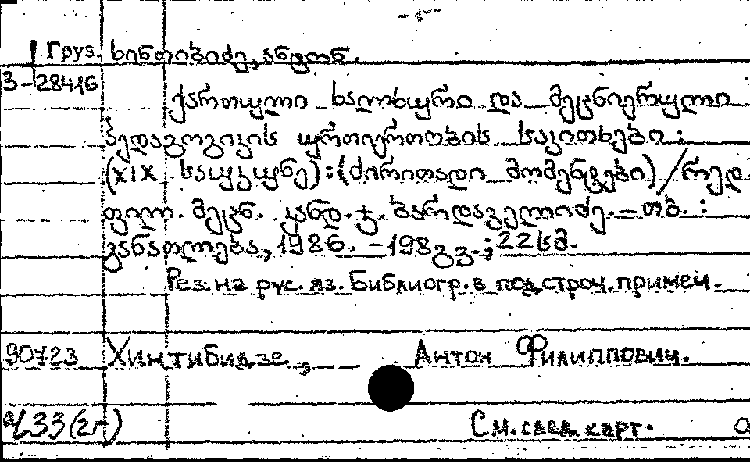 Груз. ხინთიბიძე, ანტონ.
3-28416
ქართული ხალხური და მეცნიერული
პედაგოგიკის ურთიერთობის საკითხები :
(XIX საუკუნე) : (ძირითადი მომენტები) / რედ.
ფილ. მეცნ. კანდ. ჯ. ბარდაველიძე. – თბ. :
განათლება, 1986. – 198 გვ. ; 22 სმ.
Рез. на рус. яз. Библиогр. в подстроч. примеч.
90723 Хинтибидзе, Антон Филиппович.
См. след. карт.